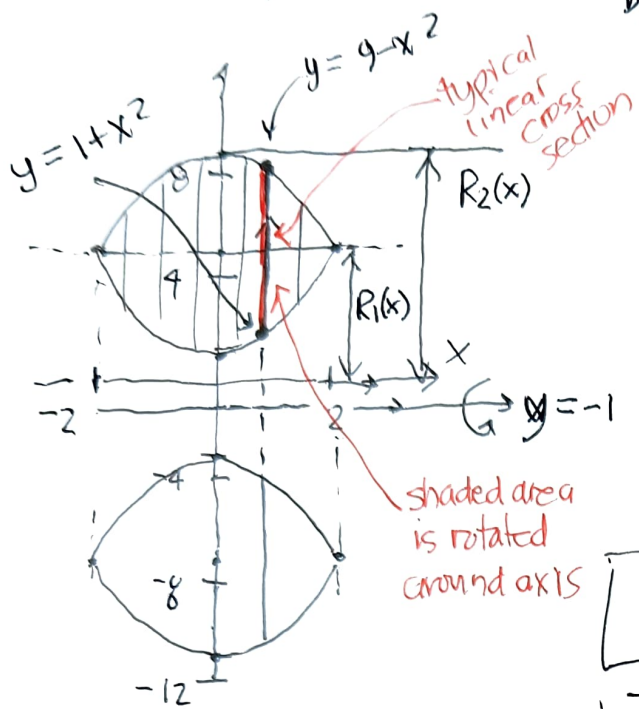 y = 9-x²
typical
linear
cross
section
y = 1+x²
8
R₂(x)
4
R₁(x)
x
-2
2
y = -1
-4
shaded area
is rotated
around axis
-8
-12